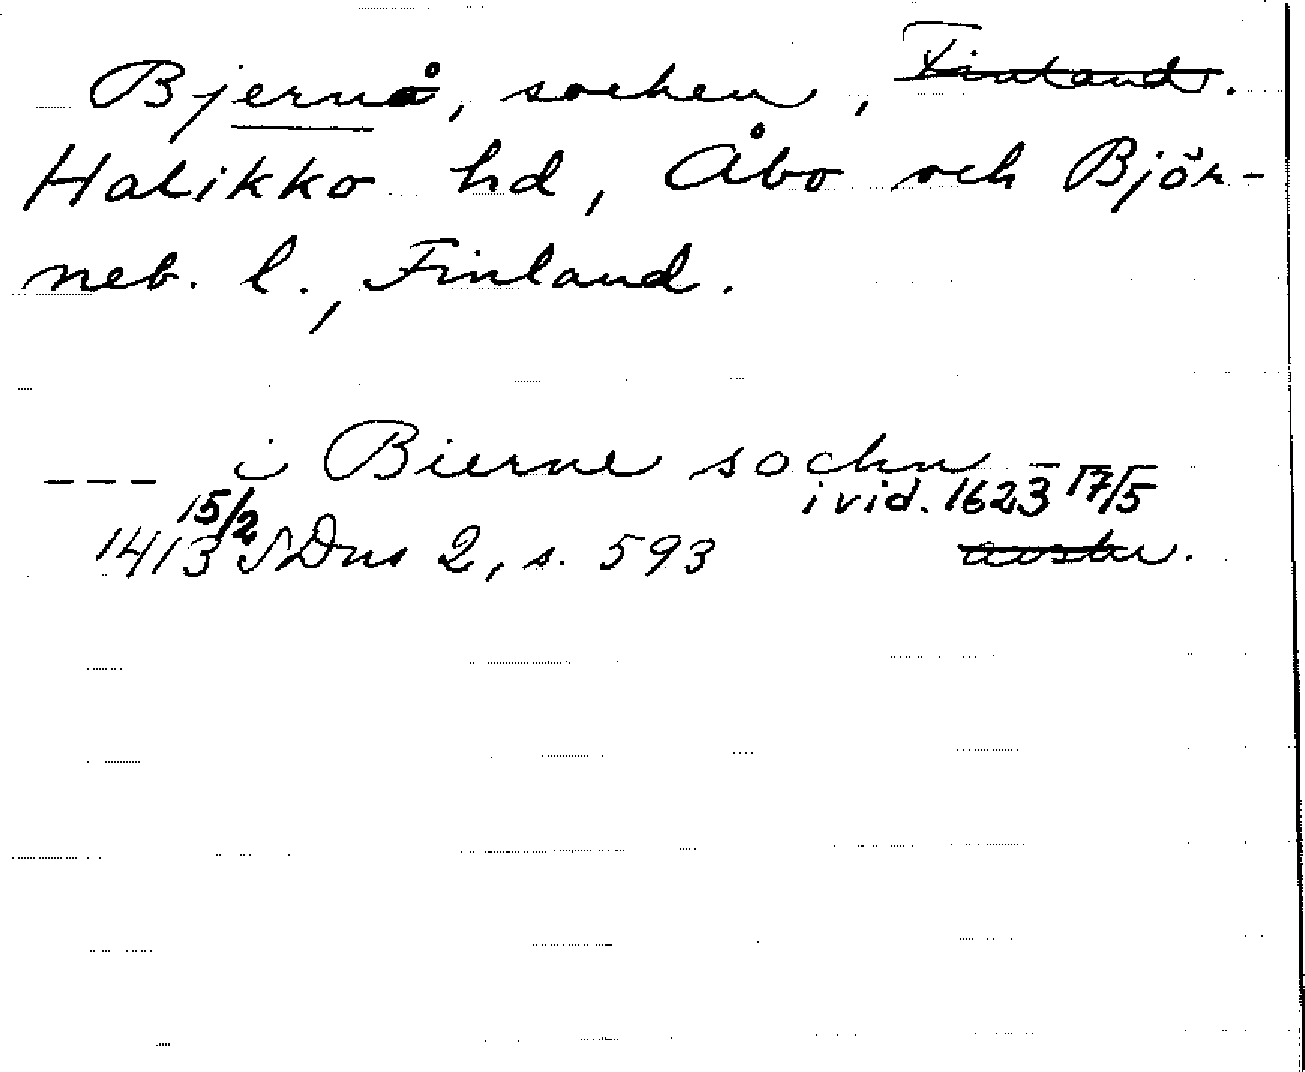 Bjernå, socken, Finland.
Halikko hd, Åbo och Björ-
neb. l., Finland.
--- i Bierne sochn ---
i vid. 1623 17/5
1413 15/2 SDns 2, s. 593 avskr.